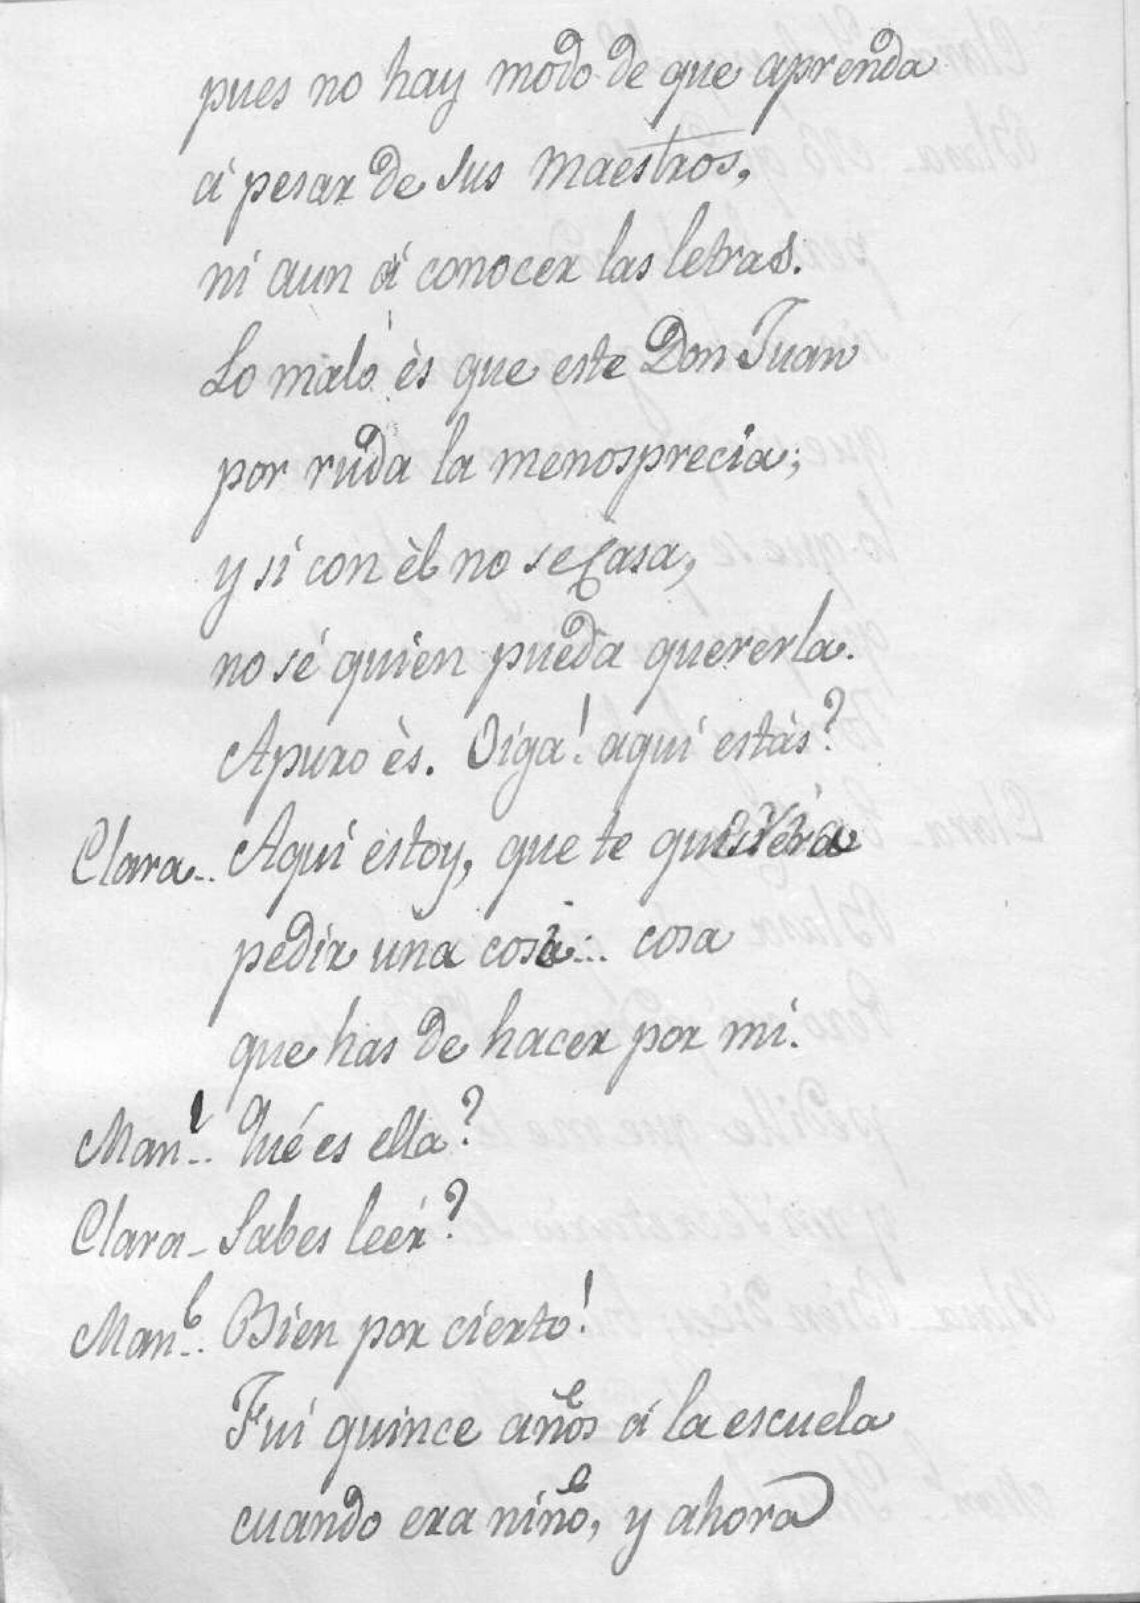 pues no hay modo de que aprenda
á pesar de sus maestros,
ni aun á conocer las letras.
Lo malo ès que este Don Juan
por ruda la menosprecia;
y si con èl no se casa,
no sé quien pueda quererla.
Apuro ès. Oiga! aqui estàs?
Clara.. Aqui estoy, que te quisiera
pedir una cosa... cosa
que has de hacer por mi.
Man.l.. Qué es ella?
Clara - Sabes leer?
Man.l.. Bien por cierto!
Fui quince años á la escuela
cuando era niño, y ahora